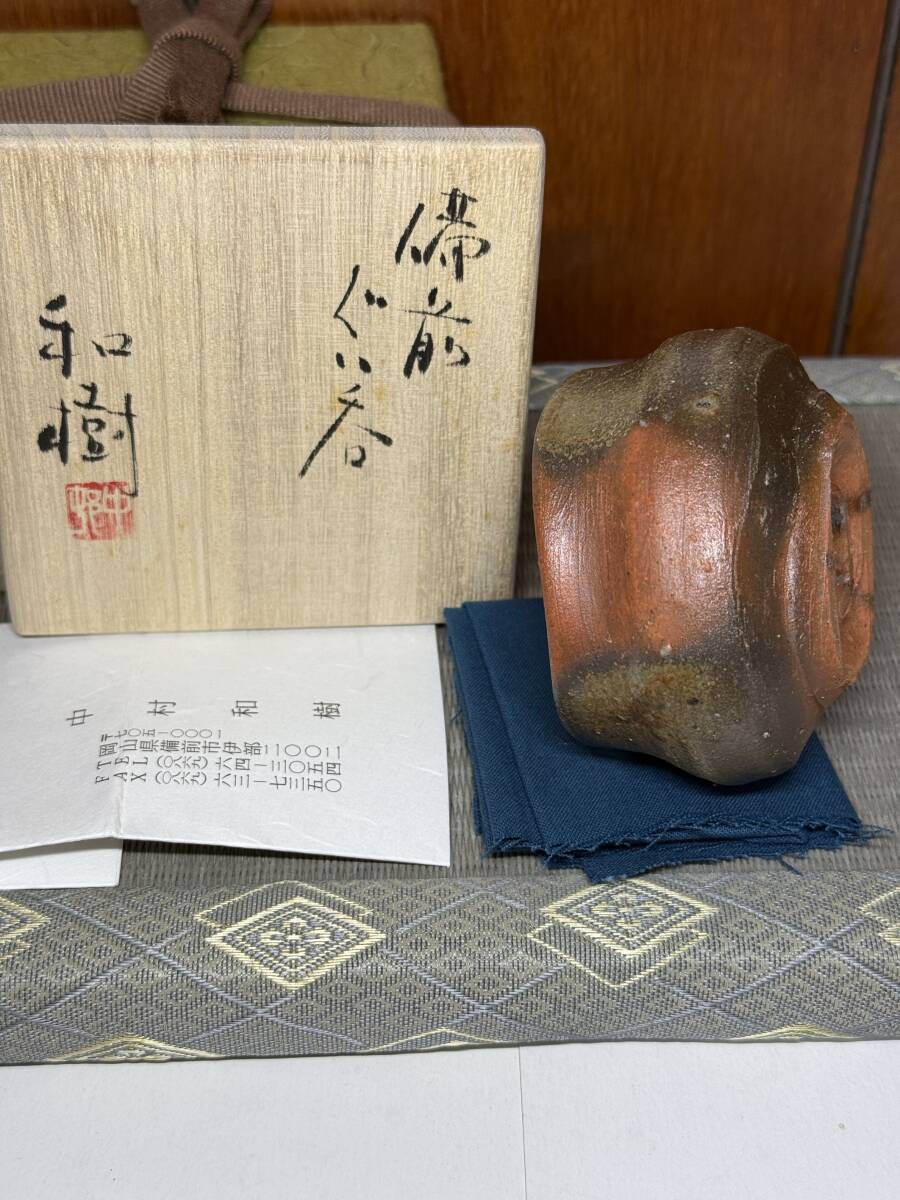 備前
ぐい呑
和樹
中村和樹
〒七〇五-〇〇〇一
岡山県備前市伊部二〇〇二
TEL(〇八六九)六四-三〇五四
FAX(〇八六九)六三-七三五〇